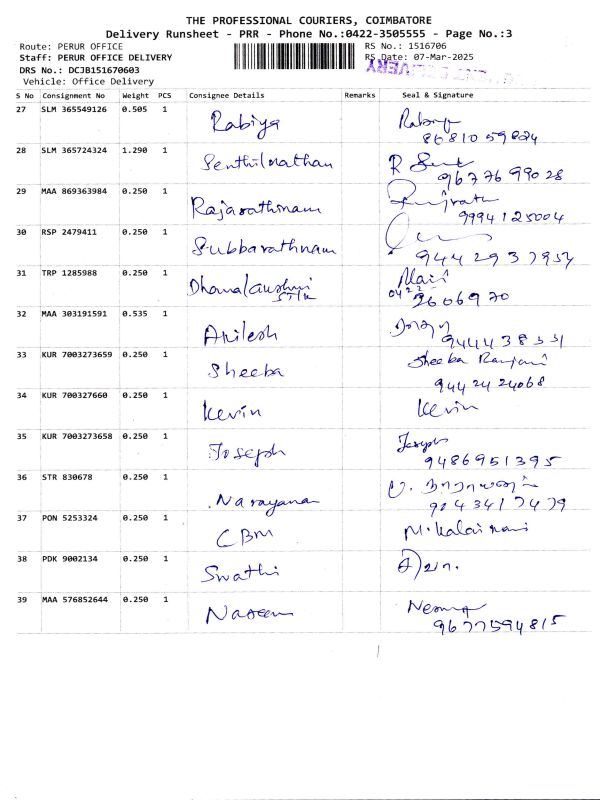 THE PROFESSIONAL COURIERS, COIMBATORE
Delivery Runsheet - PRR - Phone No.:0422-3505555 - Page No.:3
Route: PERUR OFFICE RS No.: 1516706
Staff: PERUR OFFICE DELIVERY RS Date: 07-Mar-2025
DRS No.: DCJB151670603
Vehicle: Office Delivery
S No Consignment No Weight PCS Consignee Details Remarks Seal & Signature
27 SLM 365549126 0.505 1 Rabiya Rabiya
8681059824
28 SLM 365724324 1.290 1 Senthilnathan
9677699028
29 MAA 869363984 0.250 1 Rajarathinam
9994125004
30 RSP 2479411 0.250 1 Subbarathnam
9442937954
31 TRP 1285988 0.250 1 Dhanalaxshmi
0422
2606970
32 MAA 303191591 0.535 1 Akilesh
33 KUR 7003273659 0.250 1 Sheeba Sheeba Ranjani
9442424068
34 KUR 700327660 0.250 1 Kevin Kevin
35 KUR 7003273658 0.250 1 Joseph Joseph
9486951395
36 STR 830678 0.250 1 Narayanan உ. நாராயணன்
9243417479
37 PON 5253324 0.250 1 CBM M. Kalairani
38 PDK 9002134 0.250 1 Swathi
39 MAA 576852644 0.250 1 Naseem
9677594815